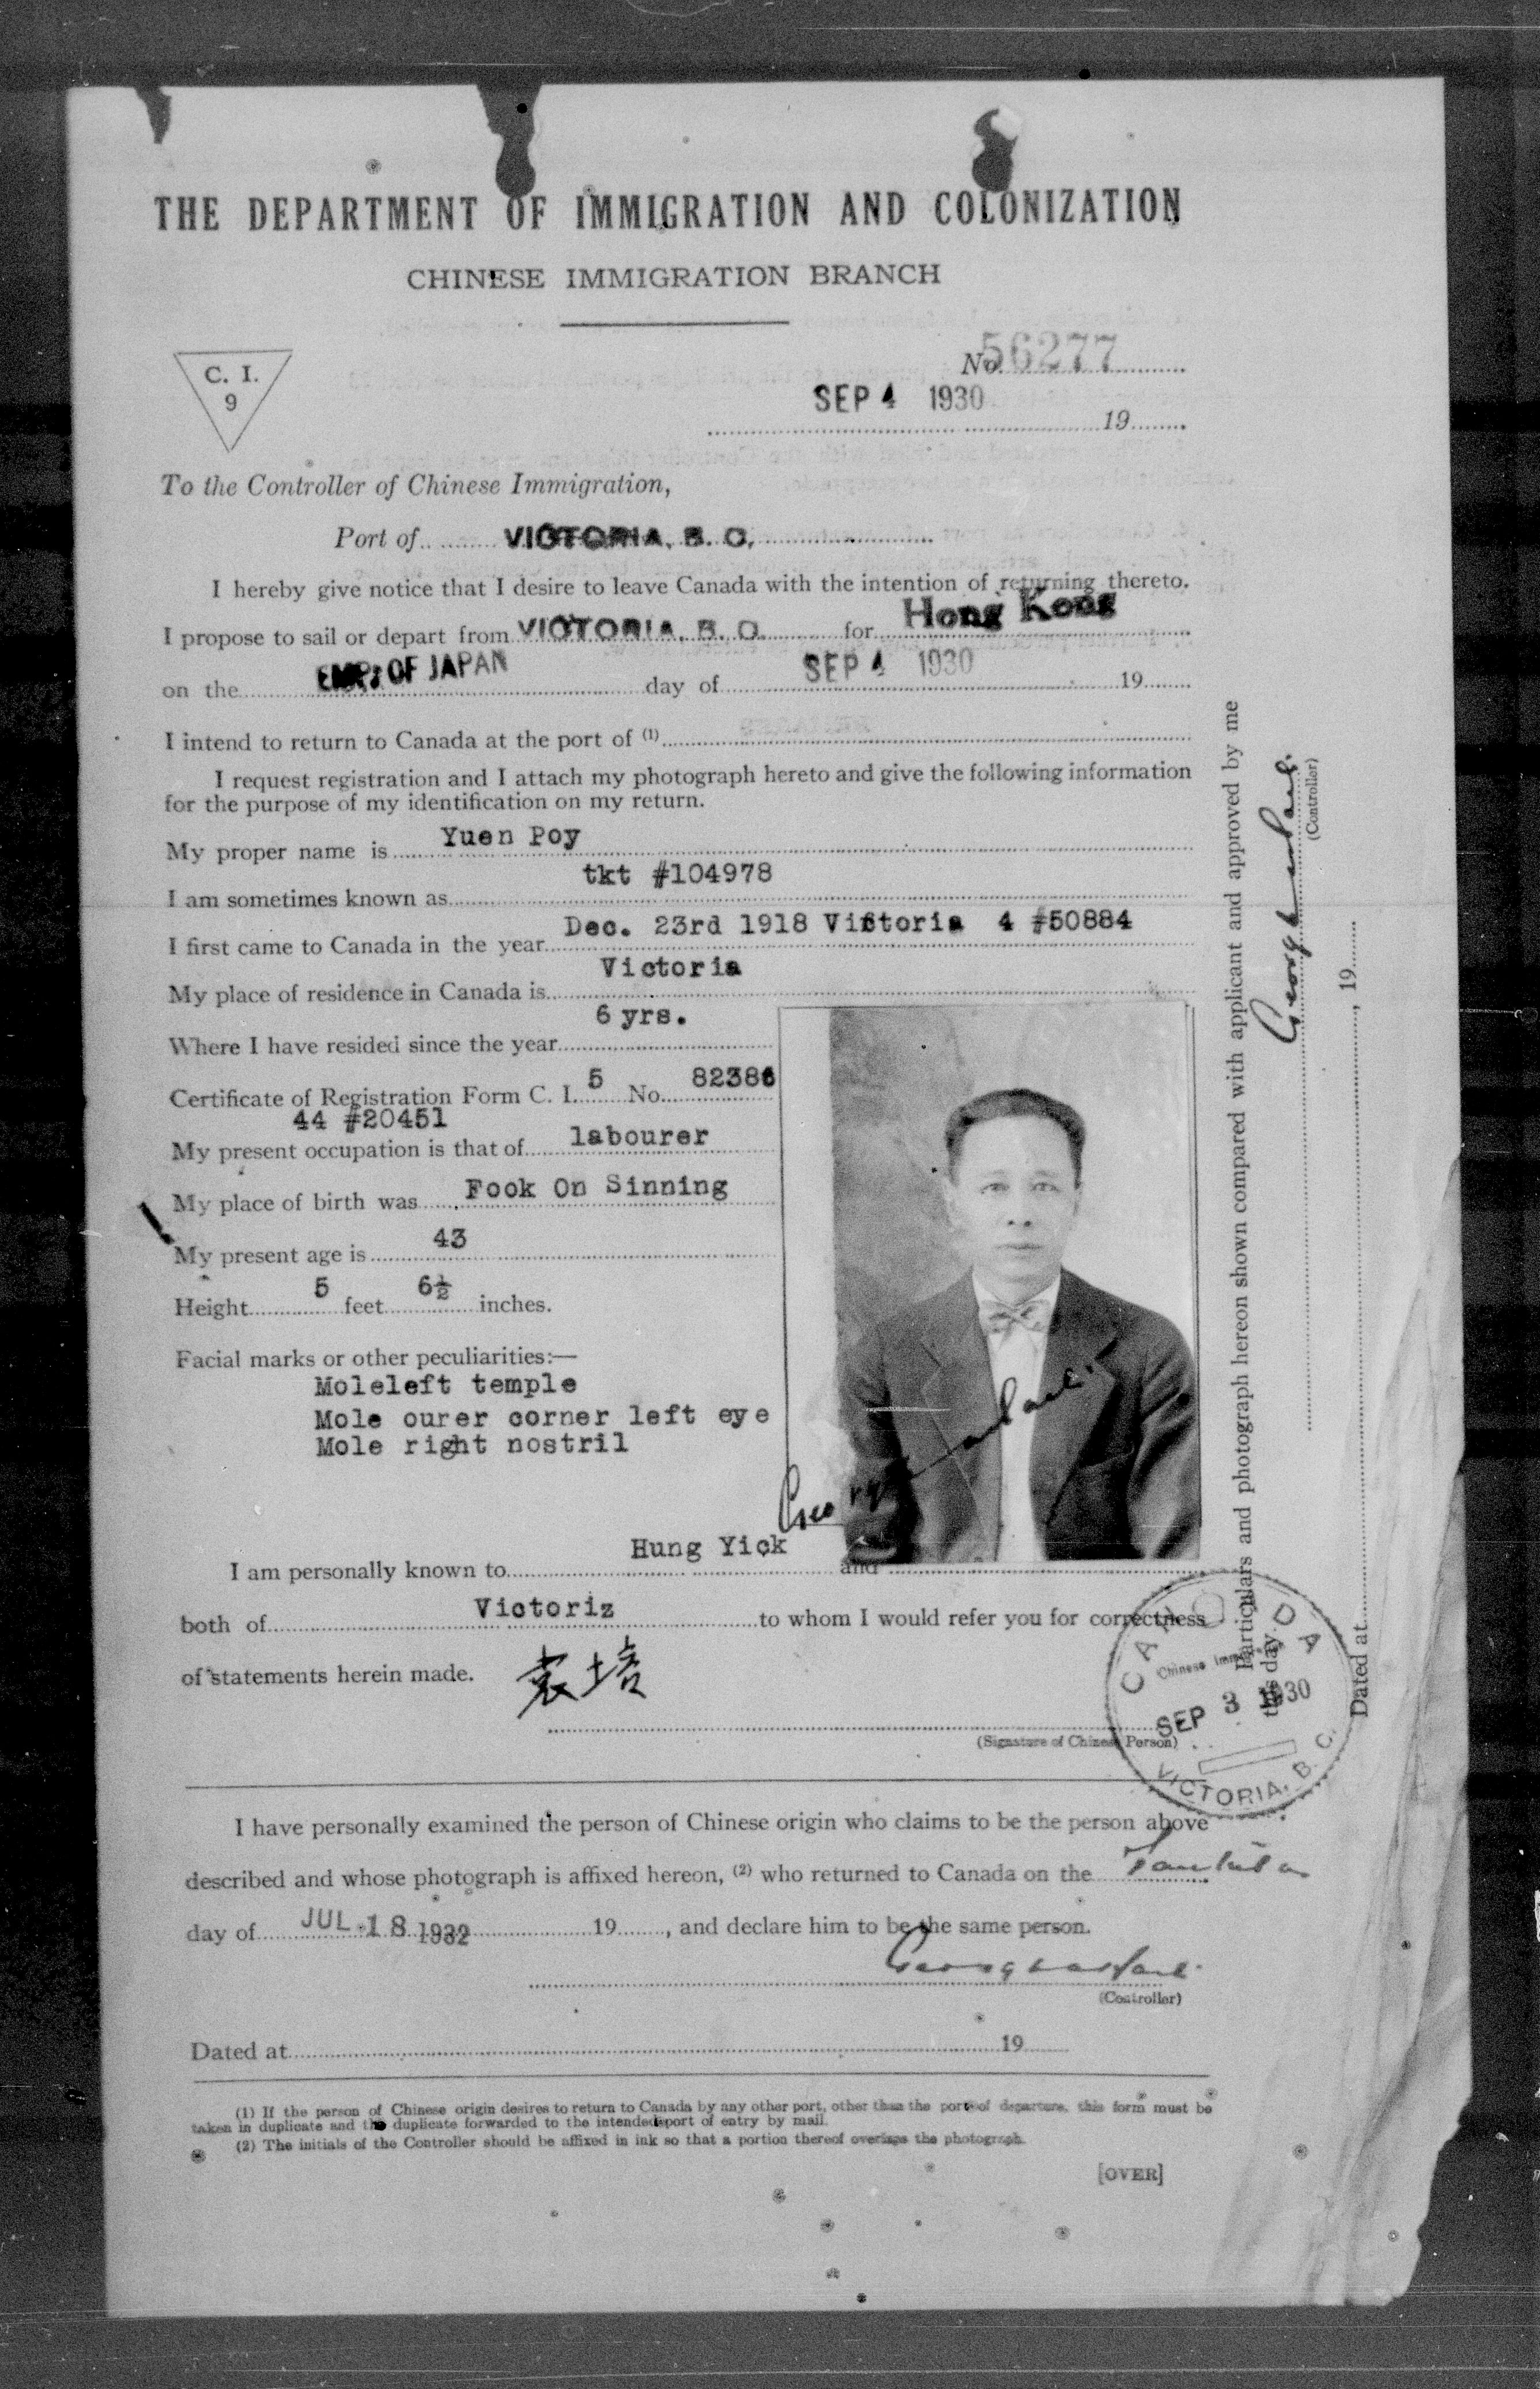 THE DEPARTMENT OF IMMIGRATION AND COLONIZATION
CHINESE IMMIGRATION BRANCH
C. I.
9
No. 56277
SEP 4 1930 19
To the Controller of Chinese Immigration,
Port of VICTORIA, B. C.
I hereby give notice that I desire to leave Canada with the intention of returning thereto.
I propose to sail or depart from VICTORIA, B. C. for Hong Kong
on the EMP. OF JAPAN day of SEP 4 1930 19
I intend to return to Canada at the port of (1)
I request registration and I attach my photograph hereto and give the following information
for the purpose of my identification on my return.
My proper name is Yuen Poy
tkt #104978
I am sometimes known as
I first came to Canada in the year Dec. 23rd 1918 Victoria 4 #50884
My place of residence in Canada is Victoria
Where I have resided since the year 6 yrs.
Certificate of Registration Form C. I. 5 No. 82386
44 #20451
My present occupation is that of labourer
My place of birth was Fook On Sinning
My present age is 43
Height 5 feet 6½ inches.
Facial marks or other peculiarities:—
Moleleft temple
Mole ourer corner left eye
Mole right nostril
I am personally known to Hung Yick and
both of Victoriz to whom I would refer you for correctness
of statements herein made. 袁培
(Signature of Chinese Person)
CANADA
Chinese
SEP 3 1930
VICTORIA, B. C.
I have personally examined the person of Chinese origin who claims to be the person above
described and whose photograph is affixed hereon, (2) who returned to Canada on the
day of JUL 18 1932 19, and declare him to be the same person.
(Controller)
Dated at 19
(1) If the person of Chinese origin desires to return to Canada by any other port, other than the port of departure, this form must be
taken in duplicate and the duplicate forwarded to the intended port of entry by mail.
(2) The initials of the Controller should be affixed in ink so that a portion thereof overlaps the photograph.
[OVER]
Particulars and photograph hereon shown compared with applicant and approved by me
this day.
(Controller)
Dated at , 19